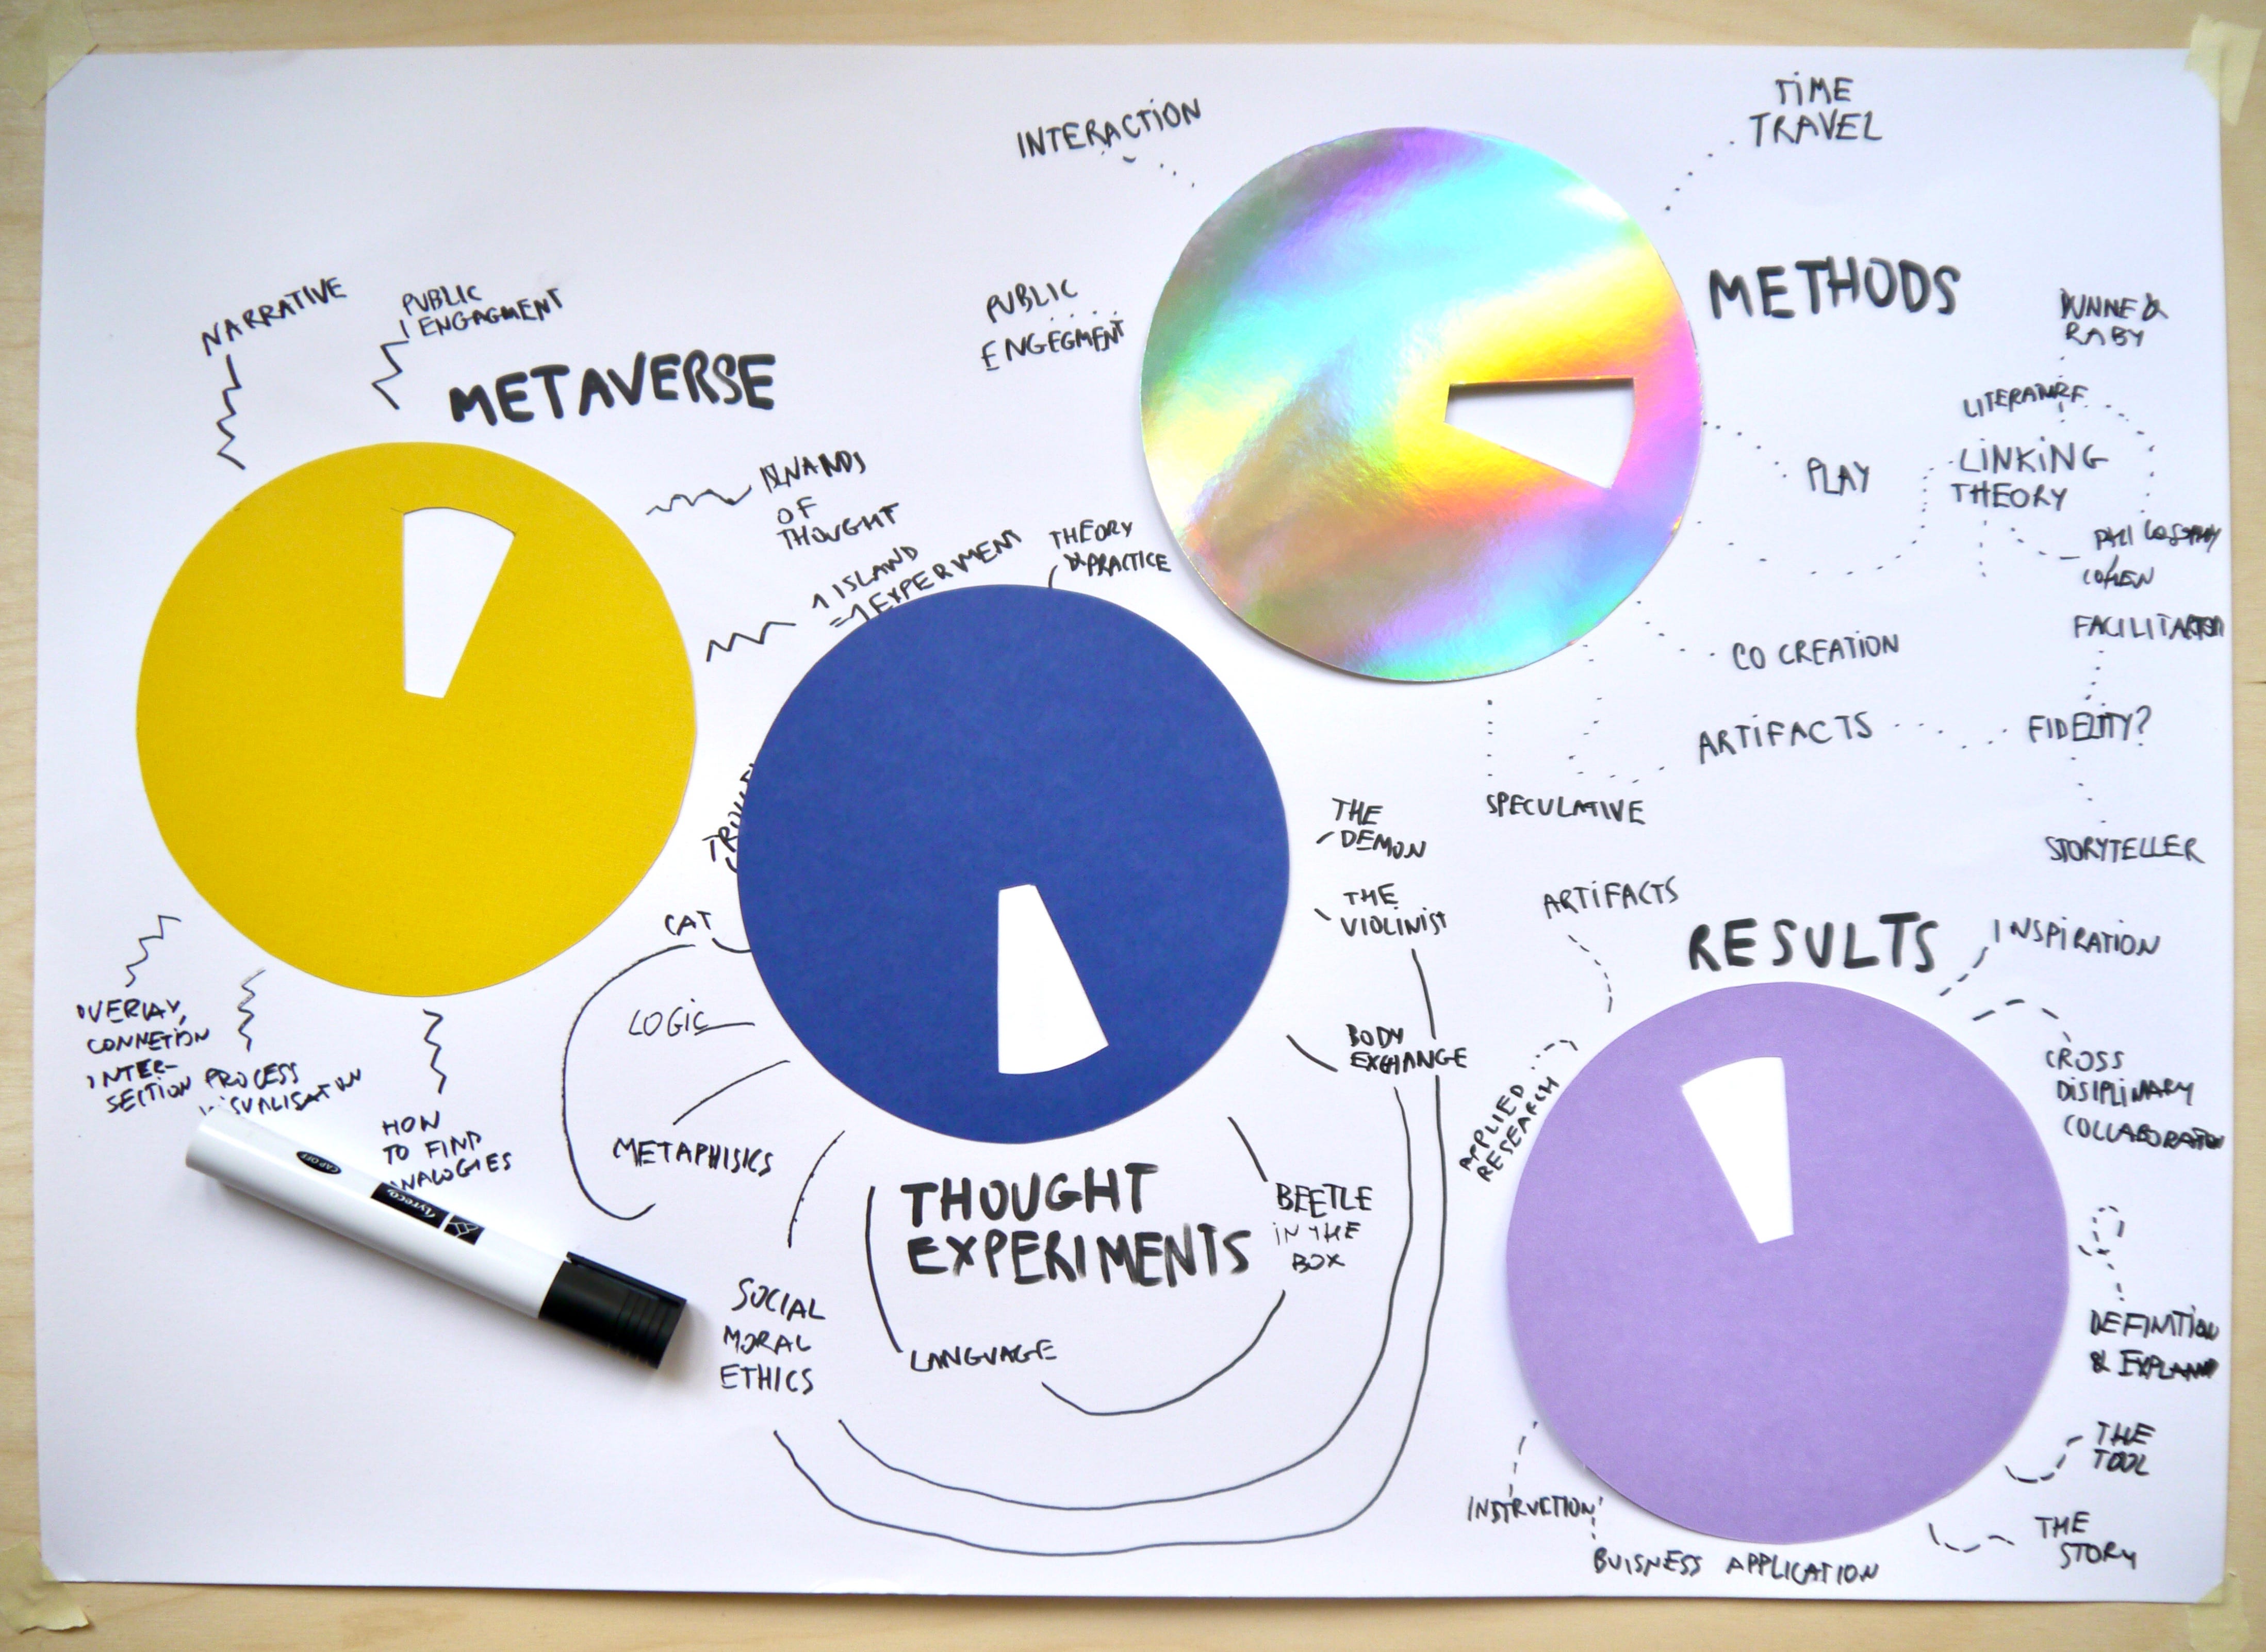 INTERACTION
TIME
TRAVEL
METHODS
PUBLIC
ENGEGMENT
DUNNE &
RABY
LITERATURE
LINKING
THEORY
PLAY
PHILOSOPHY
COHEN
CO CREATION
FACILITATOR
ARTIFACTS
FIDELITY?
SPECULATIVE
STORYTELLER
NARRATIVE
PUBLIC
ENGAGMENT
METAVERSE
ISLANDS
OF
THOUGHT
1 ISLAND
=1 EXPERIMENT
OVERLAY,
CONNETION
INTER-
SECTION
PROCESS
VISUALISATION
HOW
TO FIND
ANALOGIES
CAP OFF
lyreco
THEORY
& PRACTICE
CAT
LOGIC
METAPHISICS
SOCIAL
MORAL
ETHICS
THE
DEMON
THE
VIOLINIST
BODY
EXCHANGE
THOUGHT
EXPERIMENTS
BEETLE
IN THE
BOX
LANGUAGE
ARTIFACTS
RESULTS
INSPIRATION
APPLIED
RESEARCH
CROSS
DISIPLINARY
COLLABORATION
DEFINITION
&
THE
TOOL
THE
STORY
INSTRUCTION
BUISNESS APPLICATION